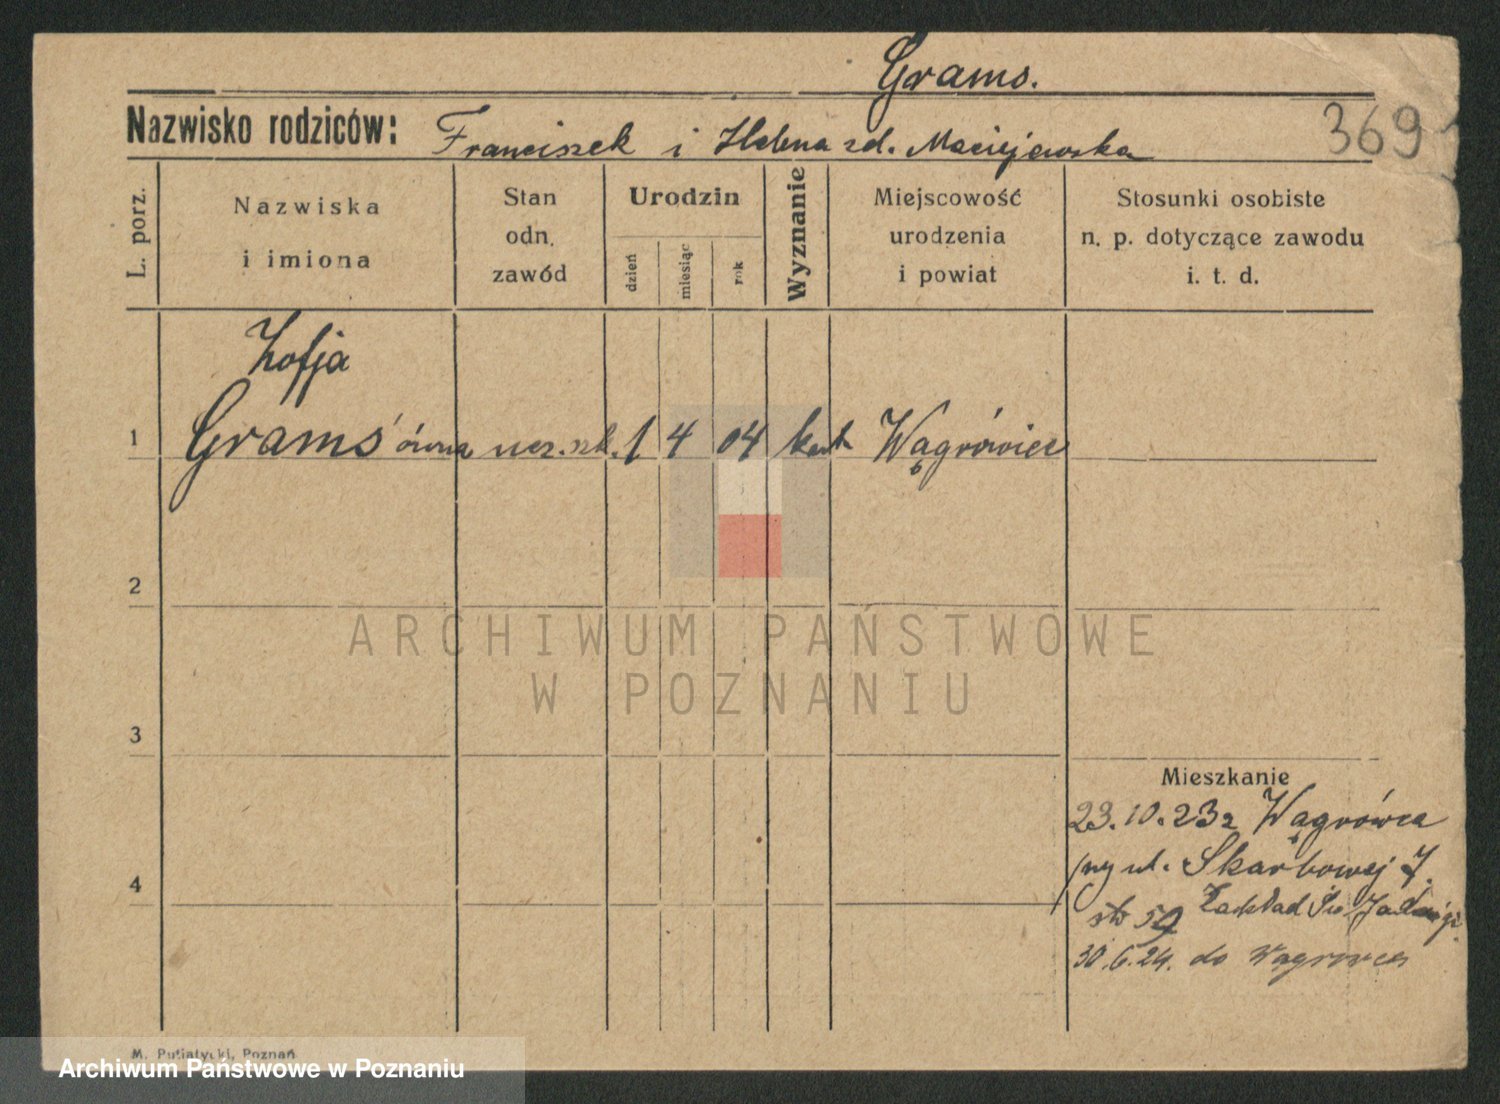 Grams.
Nazwisko rodziców: Franciszek i Helena zd. Maciejewska
369
L. porz.
Nazwiska i imiona
Stan odn. zawód
Urodzin
dzień
miesiąc
rok
Wyznanie
Miejscowość urodzenia i powiat
Stosunki osobiste n. p. dotyczące zawodu i. t. d.
Zofja
1 Grams'ówna ucz. szk. 1 4 04 kat Wągrówiec
2
ARCHIWUM PAŃSTWOWE
W POZNANIU
3
4
Mieszkanie
23.10.23 z Wągrówca
ul. Skarbowej 7.
Zakład Św Jadwigi.
30.6.24. do Wągrowca
M. Putiatycki, Poznań
Archiwum Państwowe w Poznaniu